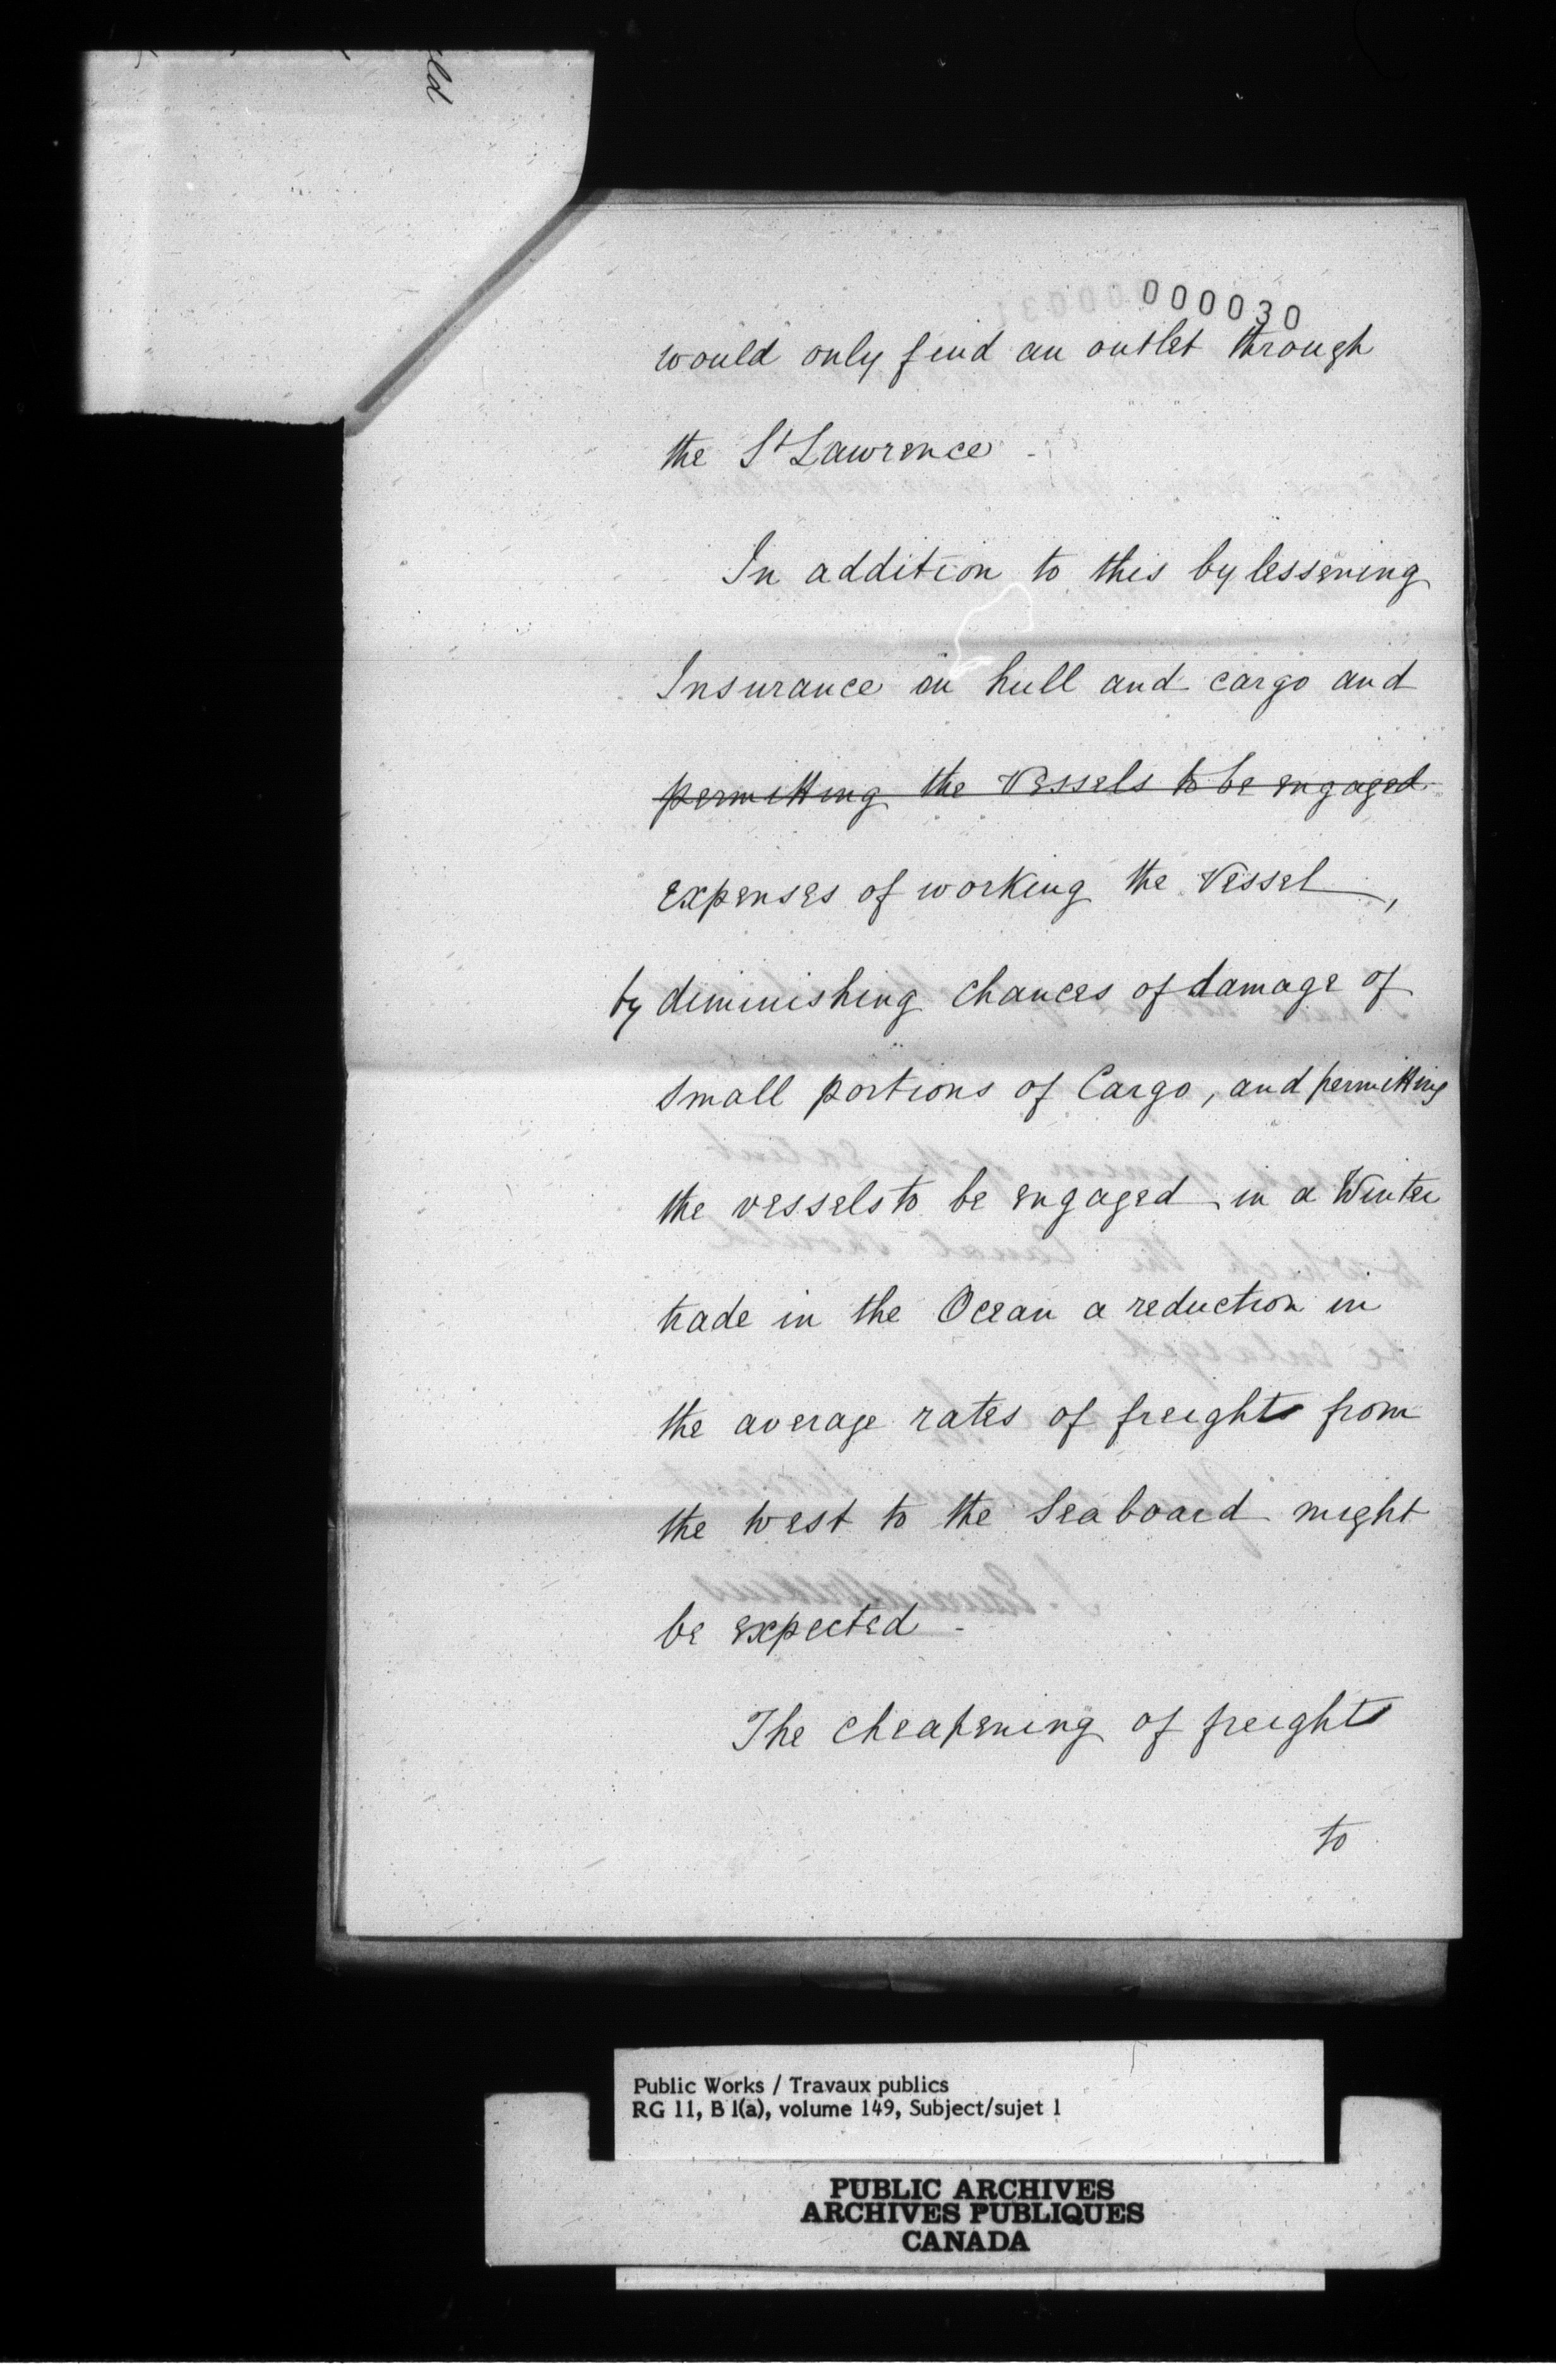 ld
000030
would only find an outlet through
the St Lawrence -
In addition to this by lessening
Insurance on hull and cargo and
permitting the Vessels to be engaged
expenses of working the Vessel,
by diminishing chances of damage of
small portions of Cargo, and permitting
the vessels to be engaged in a Winter
trade in the Ocean a reduction in
the average rates of freights from
the west to the Seaboard might
be expected -
The cheapening of freights
to
Public Works / Travaux publics
RG 11, B 1(a), volume 149, Subject/sujet 1
PUBLIC ARCHIVES
ARCHIVES PUBLIQUES
CANADA